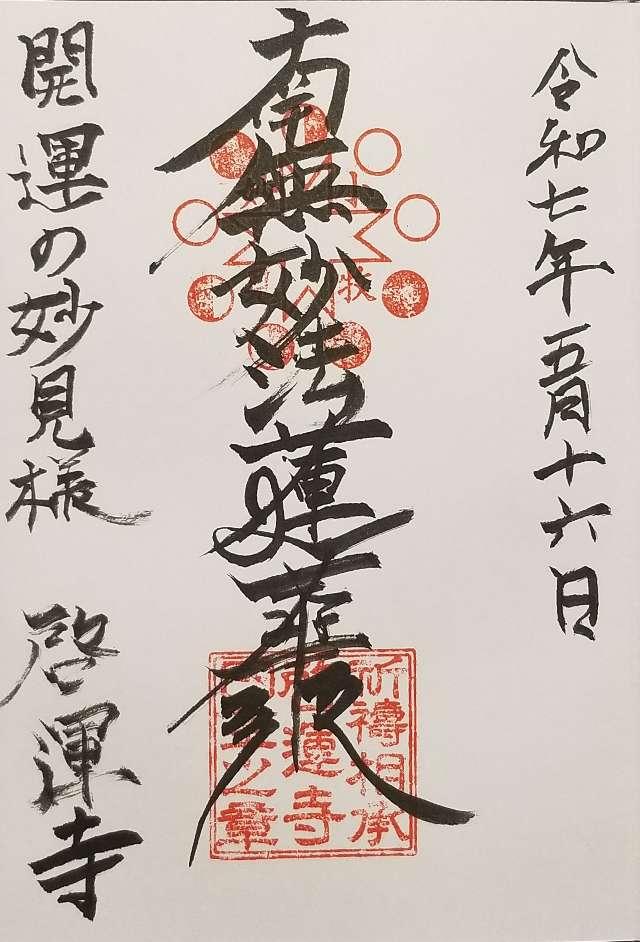 令和七年五月十六日
南無妙法蓮華経
開運の妙見様 啓運寺
祈禱相承
啓運寺
之章